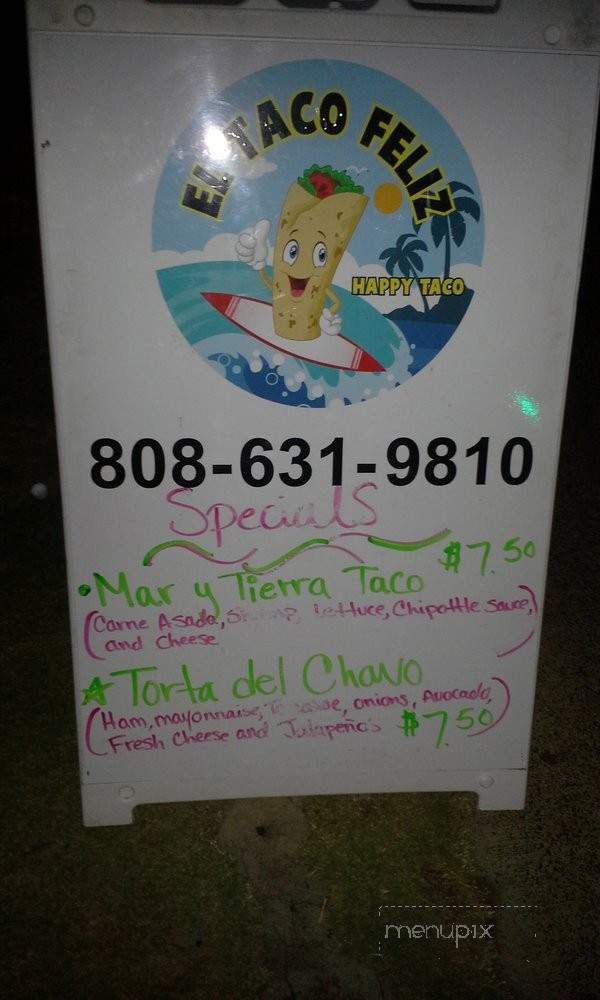 EL TACO FELIZ
HAPPY TACO
808-631-9810
Specials
• Mar y Tierra Taco $7.50
(Carne Asada, Shrimp, Lettuce, Chipottle Sauce,
and cheese)
☆ Torta del Chavo
(Ham, mayonnaise, onions, Avocado,
Fresh cheese and Jalapeño's) $7.50
menupix